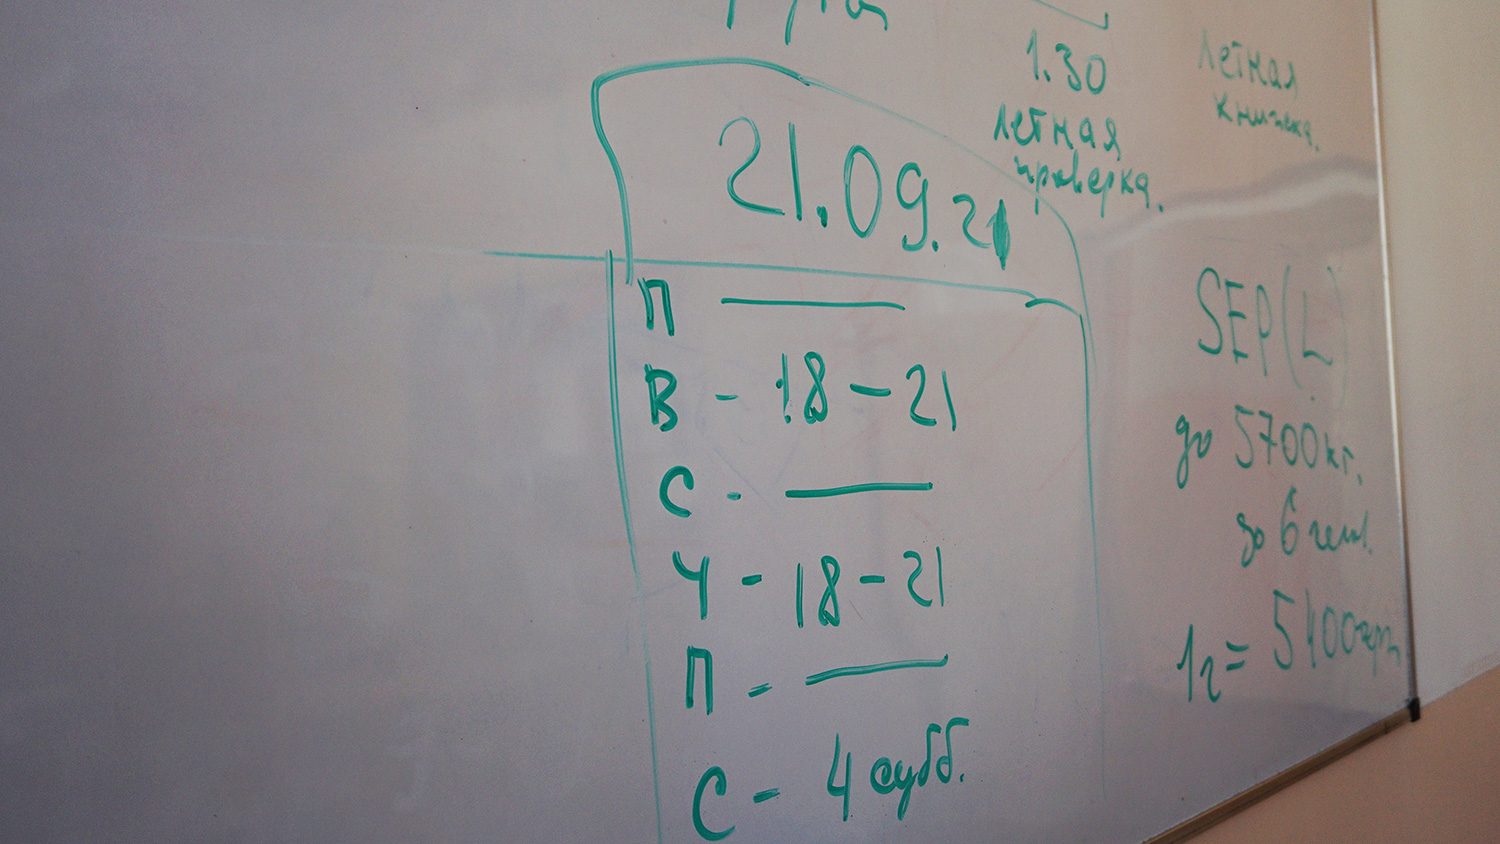 1.30
летная
проверка.
летная
книжка.
21.09.21
П ———
В - 18 - 21
С - ———
Ч - 18 - 21
П - ———
С - 4 субб.
SEP(L)
до 5700кг.
до 6 чел.
1г = 5400грн